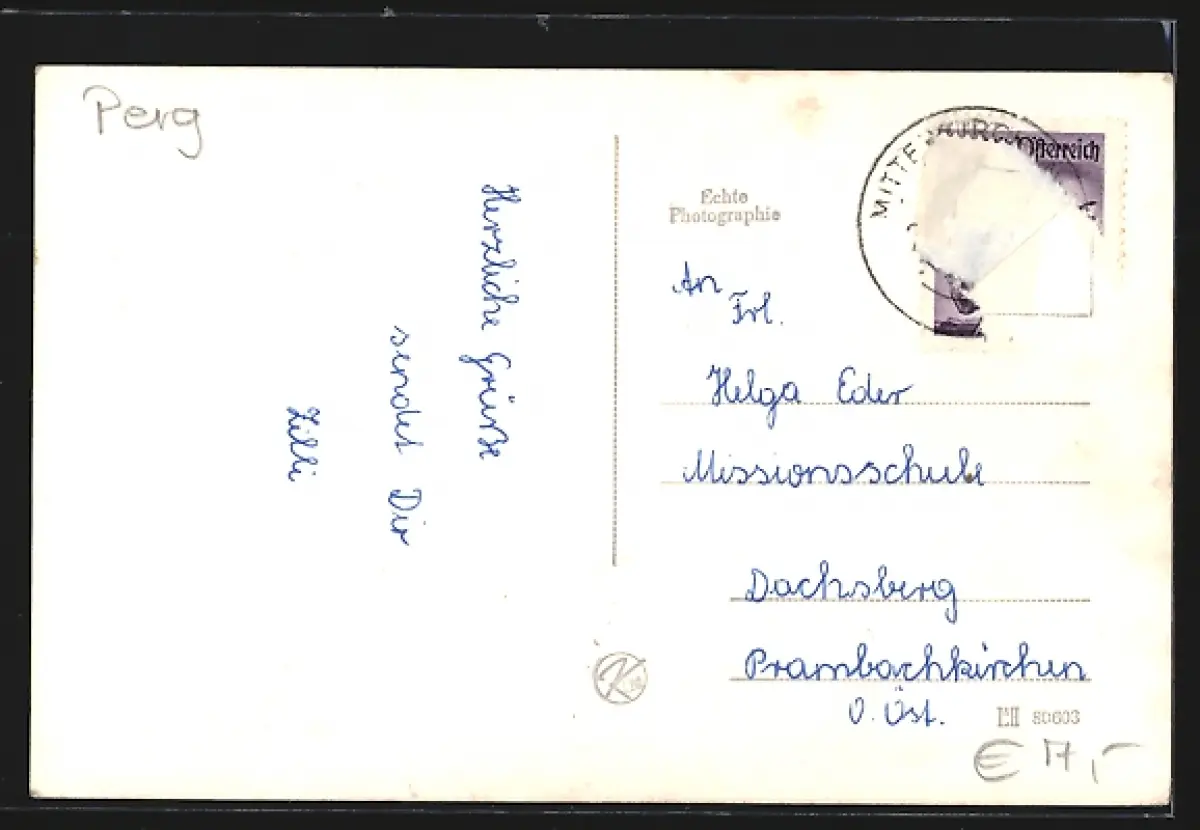 Perg
Herzliche Grüsse
sendet Dir
Zilli
Echte
Photographie
Österreich
An
Frl.
Helga Eder
Missionsschule
Dachsberg
Prambachkirchen
O. Öst.
K
80603
€ 17,-